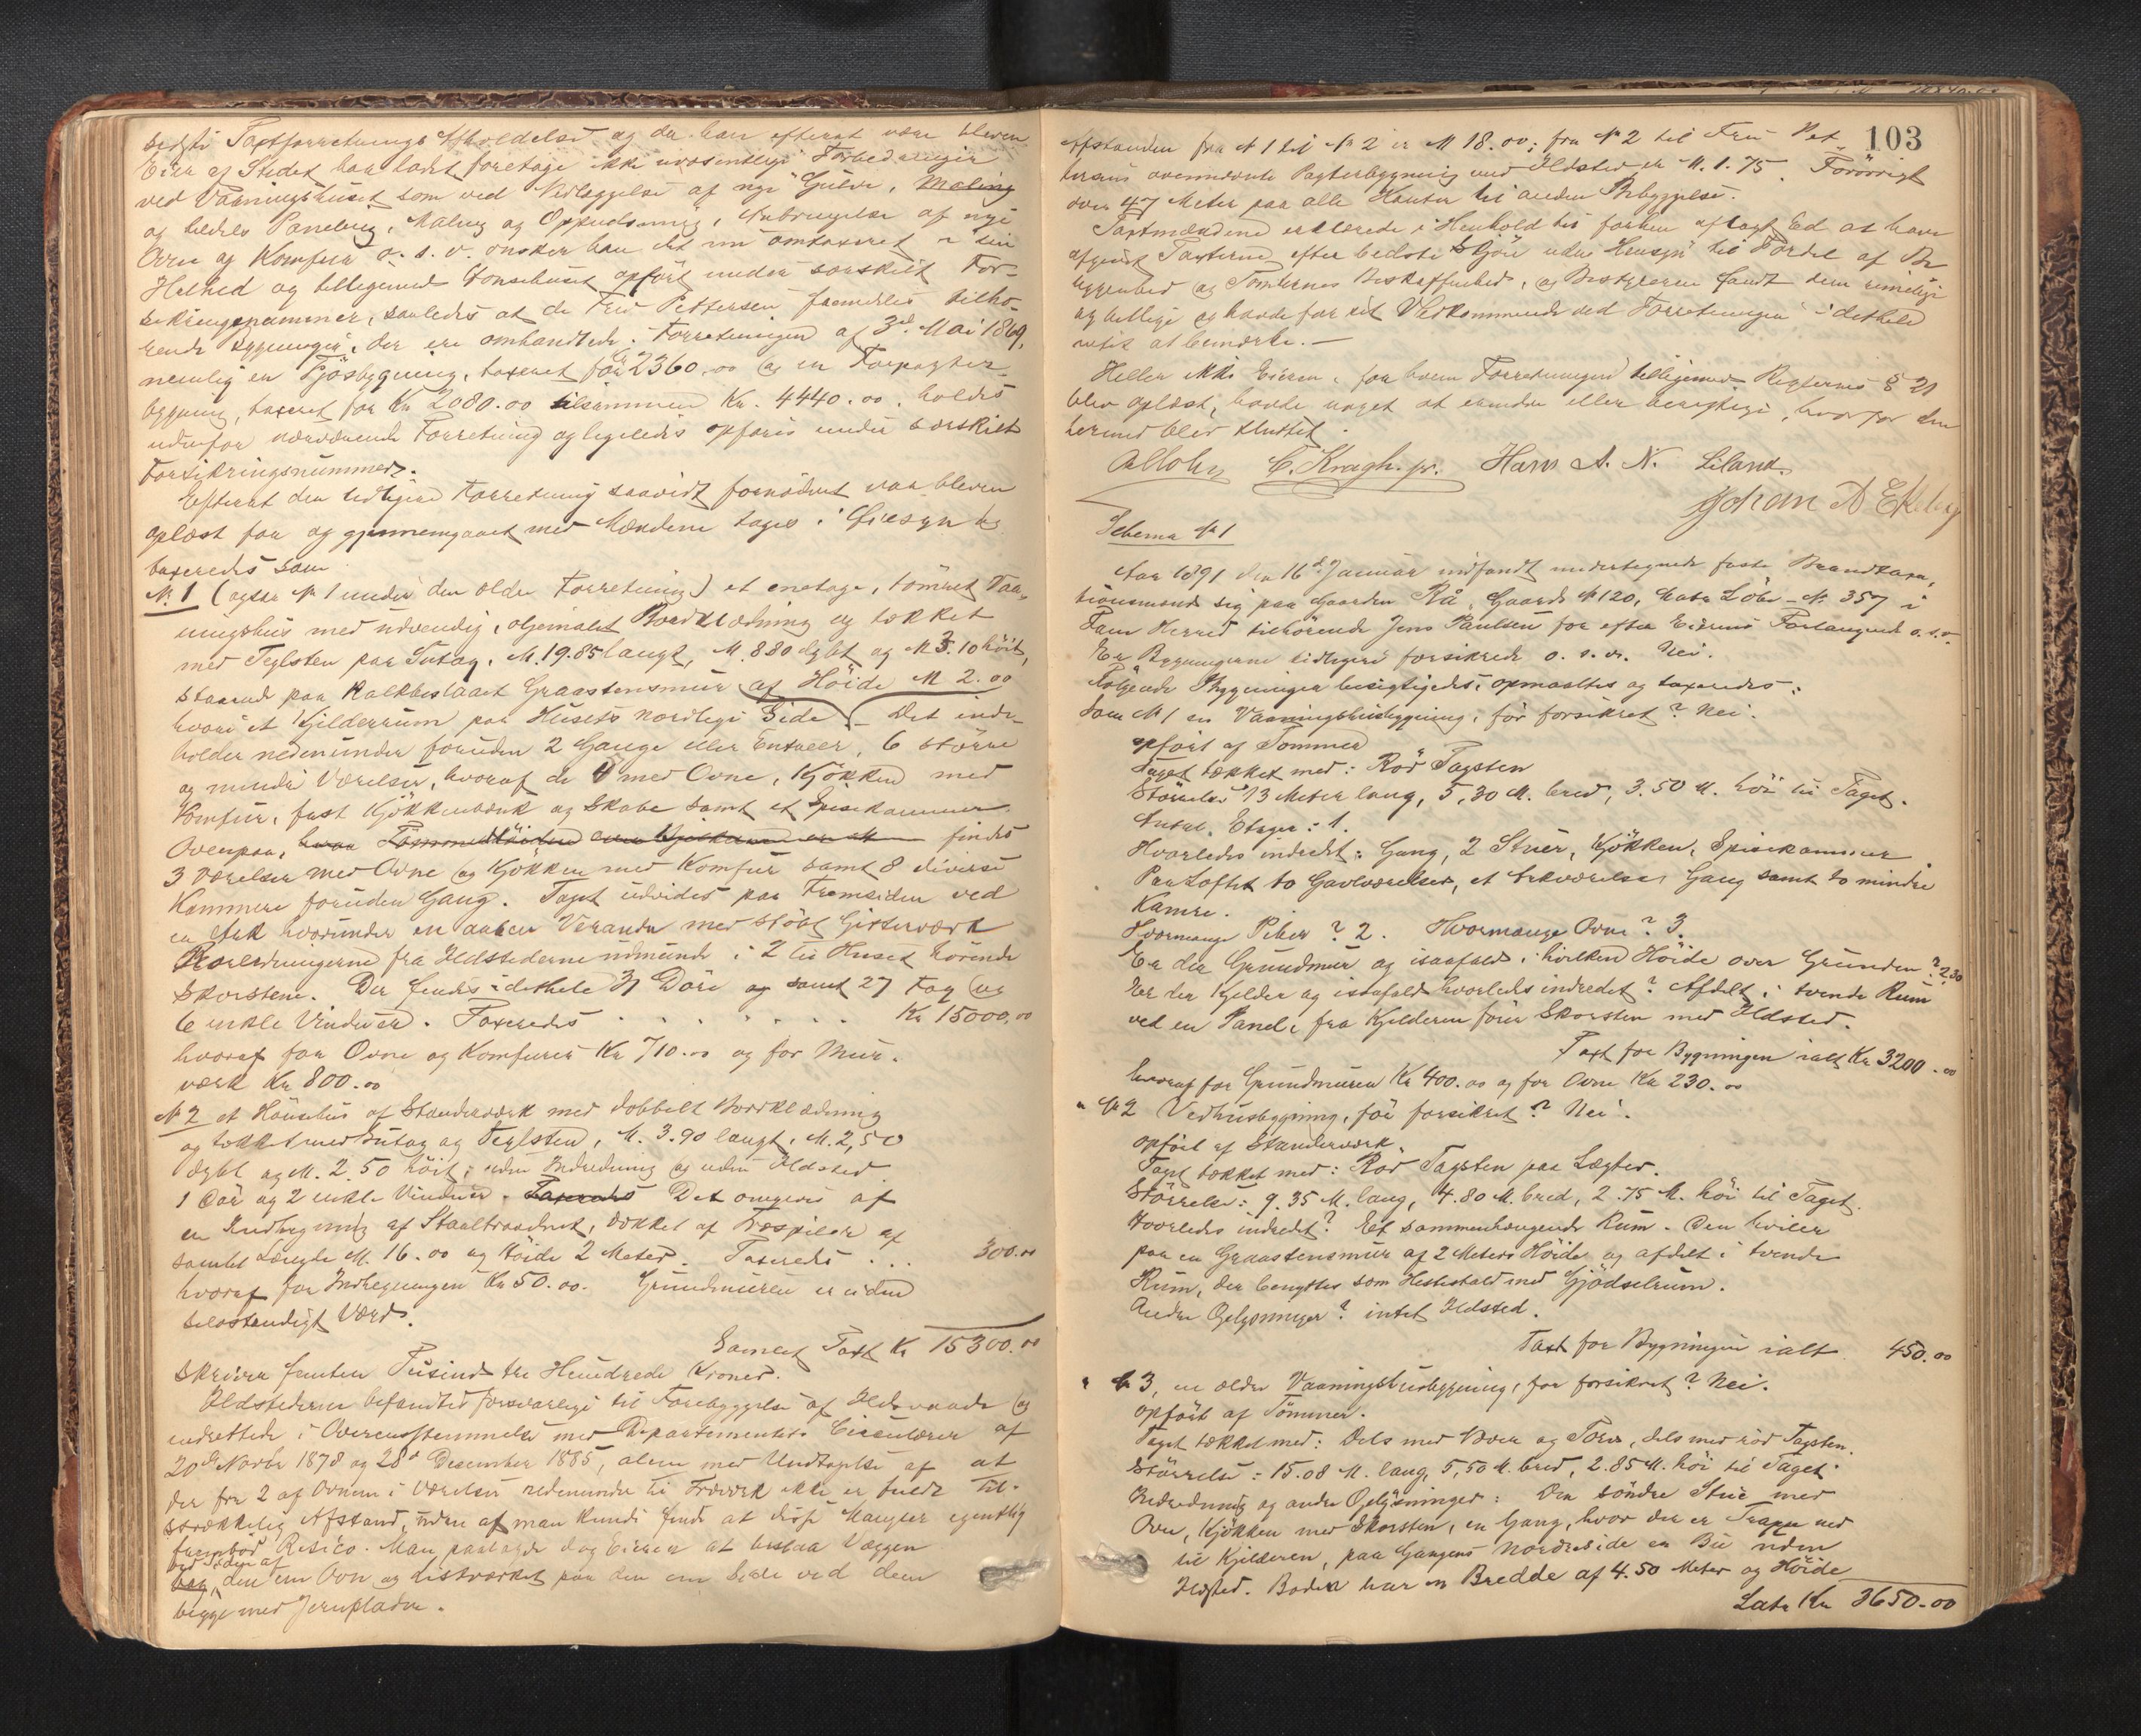 sidste Taxtforretnings Afholdelse og da han efterat være bleven
Eier af Stedet har ladet foretage ikke uvæsentlige Forbedringer
ved Vaaningshuset som ved Nedlæggelse af nye Gulve, Maling
og tildels Paneling, Maling og Oppudsning, Anbringelse af nye
Ovne og Komfur o. s. v. ønsker han det nu omtaxeret i sin
Helhed og tilligemed Hønsehuset opført under særskilt For-
sikringsnummer, saaledes at de Frü Pettersen fremdeles tilhø-
rende Bygninger, der ere omhandlede i Forretningen af 3die Mai 1869,
nemlig en Fjøsbygning, taxeret for Kr 2360.00 og en Forpagter-
bygning, taxeret for Kr 2080.00 tilsammen Kr. 4440.00, holdes
udenfor nærværende Forretning og ligeledes opføres under særskilt
Forsikringsnummer.
Efterat den tidligere Forretning saavidt fornødent var bleven
oplæst for og gjennemgaaet med Mændene toges i Øiesyn og
taxeredes som
No 1 (ogsaa No 1 under den ældre Forretning) et enetage, tømret Vaa-
ningshus med udvendig, oljemalet Bordklædning og tækket
med Teglsten paa Sutag, M. 19.85 langt, M. 8.80 dybt og M 3.10 høit,
staaende paa kalkbeslaaet Graastensmur af Høide M 2.00
hvori et Kjelderrum paa Husets nordlige Side. - Det inde-
holder nedenunder foruden 2 Gange eller Entreer, 6 større
og mindre Værelser, hvoraf de 4 med Ovne, Kjøkken med
Komfur, fast Kjøkkenbænk og Skabe samt et Spisekammer
Ovenpaa, findes
3 Værelser med Ovne og Kjøkken med Komfur samt 8 diverse
Kammere foruden Gang. Taget udvides paa Fremsiden ved
en Ark hvorunder en aaben Veranda med støbt Gitterværk
Rørledningerne fra Ildstederne udmunde i 2 til Huset hørende
Skorstene. Der findes idethele 31 Døre og samt 27 Fag og
6 enkle Vinduer. Taxeredes . . . . . . . Kr 15000.00
hvoraf for Ovne og Komfurer Kr 710.00 og for Mur-
værk Kr 800.00
No 2 et Hønsehus af Standerværk med dobbelt Bordklædning
og tækket med Sutag og Teglsten, M. 3.90 langt, M. 2,50
dybt og M. 2.50 høit, uden Indredning og uden Ildsted.
1 Dør og 2 enkle Vinduer. Taxeredes Det omgives af
en Indhegning af Staaltraadnet, dækket af Træspiler af
samlet Længde M. 16.00 og Høide 2 Meter. Taxeredes . . . 300.00
hvoraf for Indhegningen Kr 50.00. Grundmuren er uden
selvstændigt Værd.
Samlet Taxt Kr 15300.00
Skriver femten Tusinde tre Hundrede Kroner.
Ildstederne befandtes forsvarlige til Forebyggelse af Ildsvaade og
indrettede i Overensstemmelse med Departementets Circulærer af
20de Novbr 1878 og 28de December 1885, alene med Undtagelse af at
der fra 2 af Ovnene i Værelser nedenunder til Træværk ikke er fuldt til-
strækkelig Afstand, uden at man kunde finde at disse Mangler egentlig
frembød Risico. Man paalagde dog Eieren at beslaa Væggen
ved Siden af den ene Ovn og Listværket paa den ene Side ved den
begge med Jernplader.
103
Afstanden fra No 1 til No 2 er M 18.00; fra No 2 til Frü Pet
tersens ovennævnte Pagterbygning med Ildsted er M. 1.75. Forøvrigt
over 47 Meter paa alle Kanter til anden Bebyggelse.
Taxtmændene erklærede i Henhold til forhen aflagt Ed at have
afgivet Taxterne efter bedste Skjøn uden Hensyn til Fordel af Be
liggenhed og Tomternes Beskaffenhed, og Bestyreren fandt dem rimelige
og billige og havde for sit Vedkommende ved Forretningen idethele
intet at bemærke. -
Heller ikke Eieren, for hvem Forretningen tilligemed Reglernes § 21
blev oplæst, havde noget at erindre eller berigtige, hvorfor den
hermed blev sluttet.
C. Kragh. jr. Hans A. N. Liland.
Johan A Ekeley
Schema No 1
Aar 1891 den 16de Januar indfandt undertegnede faste Brandtaxa-
tionsmænd sig paa Gaarden Rå, Gaards No 120, Matr Løbe-No 357 i
Fane Herred tilhørende Jens Paulsen for efter Eierens Forlangende o. s. v.
Er Bygningerne tidligere forsikrede o. s. v. Nei.
Følgende Bygninger besigtigedes, opmaaltes og taxeredes:
Som No 1 en Vaaningshusbygning, før forsikret? Nei.
opført af Tømmer
Taget tækket med: Rød Tagsten
Størrelse 13 Meter lang, 5,30 M. bred, 3.50 M. høi til Taget.
Antal Etager: 1.
Hvorledes indredet: Gang, 2 Stuer, Kjøkken, Spisekammer.
Paa Loftet to Gavlværelser, et Arkværelse, Gang samt to mindre
Kamre.
Hvormange Piber? 2. Hvormange Ovne? 3.
Er der Grundmur og isaafald i hvilken Høide over Grunden? 2.30
Er der Kjelder og isaafald hvorledes indredet? Afdelt i tvende Rum
ved en Panel, fra Kjelderen fører Skorsten med Ildsted.
Taxt for Bygningen ialt Kr 3200.00
hvoraf for Grundmuren Kr 400.00 og for Ovne Kr 230.00
" No 2 Vedhusbygning, før forsikret? Nei.
opført af Standerværk.
Taget tækket med: Rød Tagsten paa Lægter.
Størrelse: 9.35 M. lang, 4.80 M. bred, 2.75 M. høi til Taget.
Hvorledes indredet? Et sammenhængende Rum. Den hviler
paa en Graastensmur af 2 Meters Høide og afdelt i tvende
Rum, der benyttes som Hestestald med Gjødselrum.
Andre Oplysninger? intet Ildsted.
Taxt for Bygningen ialt 450.00
" No 3, en ældre Vaaningshusbygning, før forsikret? Nei.
opført af Tømmer.
Taget tækket med: Dels med Næver og Torv, dels med rød Tagsten.
Størrelse: 15.08 M. lang, 5,50 M. bred, 2.85 M. høi til Taget.
Indredning og andre Oplysninger: Den søndre Stue med
Ovn, Kjøkken med Skorsten, en Gang, hvor der er Trappe ned
til Kjelderen, paa Gangens Nordreside en Bu uden
Ildsted. Boden har en Bredde af 4.50 Meter og Høide
Lats Kr 3650.00